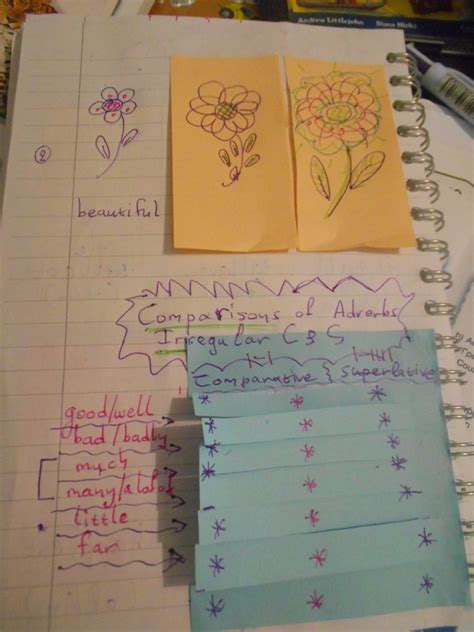 Andrew Littlejohn Diana Hicks
2
beautiful
Comparisons of Adverbs
Irregular C & S
Comparative & Superlative
good/well
bad/badly
much
many/a lot of
little
far